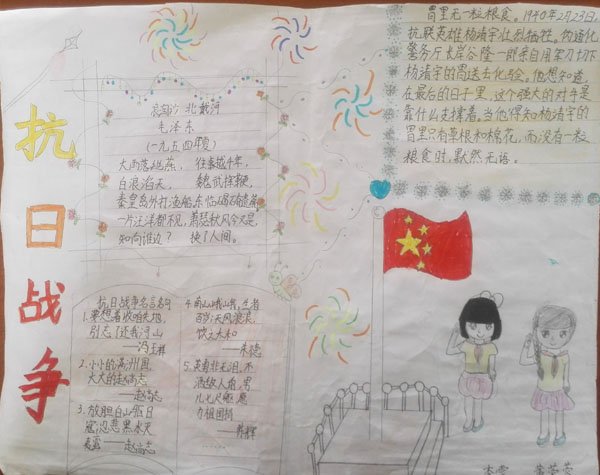 抗日战争
浪淘沙 北戴河
毛泽东
(一九五四年夏)
大雨落幽燕, 往事越千年,
白浪滔天, 魏武挥鞭,
秦皇岛外打渔船,东临碣石有遗篇
一片汪洋都不见,萧瑟秋风今又是,
知向谁边? 换了人间。
胃里无一粒粮食。1940年2月23日,
抗联英雄杨靖宇壮烈牺牲。伪通化
警务厅长岸谷隆一郎亲自用军刀切下
杨靖宇的胃送去化验。他想知道,
在最后的日子里,这个强大的对手是
靠什么支撑着。当他得知杨靖宇的
胃里只有草根和棉花,而没有一粒
粮食时,默然无语。
抗日战争名言名句
1.要想着收咱失地,
别忘了还我河山
——冯玉祥
2.小小的满洲国,
大大的赵尚志
——赵尚志
3.放胆白山擒日
寇,忍悲黑水灭
——赵尚志
5.英雄非无泪,不
洒敌人前,男
儿七尺躯,愿
为祖国捐
——朱德